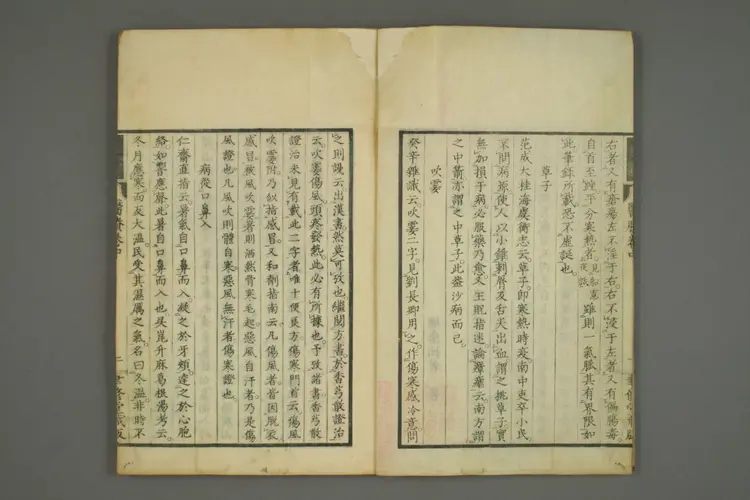 右者又有素屬左不淫于右右不淫于左者又有傷腸毒
自首至踵平分寒熱者見知意夜話雖則一氣脈其有界限如
此筆錄所載恐不虛誕也
草子
范成大桂海虞衡志云草子即寒熱時疫南中吏卒小民
不問病源使人以小錐刺脣及舌尖出血謂之挑草子實
無加損于病必服藥乃愈又王貺指迷論瘴瘧云南方謂
之中箭亦謂之中草子此蓋沙病而已
吹霎
癸辛雜識云吹霎二字見劉長卿用之作傷寒感冷意問
之則謾云出漢書然莫可攷也繼閱方書於香芎散證治
云吹霎傷風頭疼發熱此必有所據也予攷諸書香芎散
證治未見有載此二字者唯十便良方傷寒門首云傷風
吹霎附乃似指感冒又和劑指南云凡傷風者皆因脫衣
感冒被風吹霎著則洒然骨寒毛起惡風自汗者乃是傷
風證也凡風吹則體自寒惡風無汗者傷寒證也
病從口鼻入
仁齋直指云暑氣自口鼻而入凝之於牙頰達之於心胞
絡如響應聲此暑自口鼻而入也及崑升麻葛根湯考云
冬月應寒而反大溫民受其濕厲之氣名曰冬溫非時不